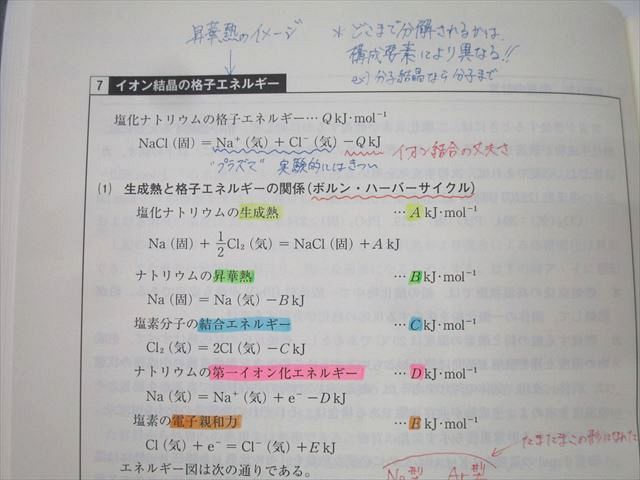 昇華熱のイメージ
* どこまで分解されるかは、
構成要素により異なる!!
ex) 分子結晶なら分子まで
7 イオン結晶の格子エネルギー
塩化ナトリウムの格子エネルギー…Q kJ·mol⁻¹
NaCl(固)=Na⁺(気)+Cl⁻(気)-Q kJ
イオン結合の丈夫さ
"プラズマ" 実験的にはきつい
(1) 生成熱と格子エネルギーの関係(ボルン・ハーバーサイクル)
塩化ナトリウムの生成熱 …A kJ·mol⁻¹
Na(固)+1/2Cl₂(気)=NaCl(固)+A kJ
ナトリウムの昇華熱 …B kJ·mol⁻¹
Na(固)=Na(気)-B kJ
塩素分子の結合エネルギー …C kJ·mol⁻¹
Cl₂(気)=2Cl(気)-C kJ
ナトリウムの第一イオン化エネルギー …D kJ·mol⁻¹
Na(気)=Na⁺+e⁻-D kJ
塩素の電子親和力 …E kJ·mol⁻¹
Cl(気)+e⁻=Cl⁻(気)+E kJ
たまたまこの形になれた
エネルギー図は次の通りである。
Ne型 Ar型